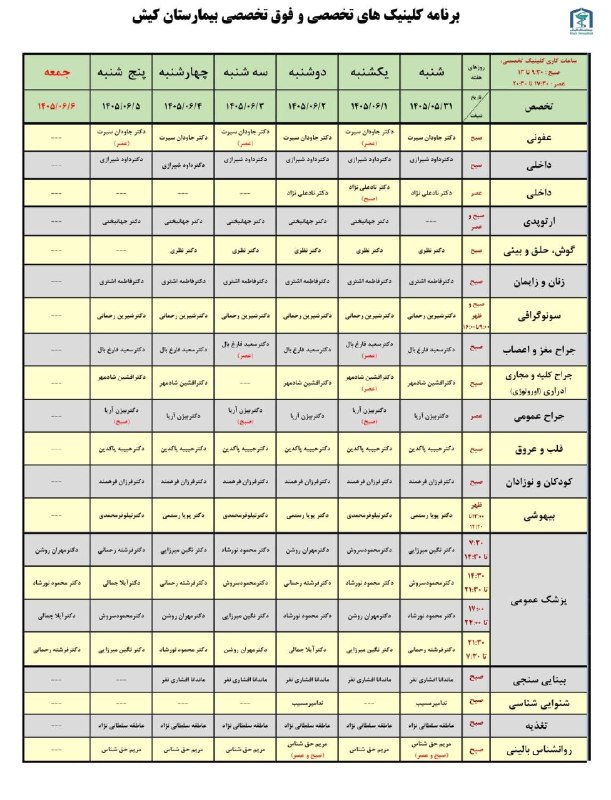 برنامه کلینیک های تخصصی و فوق تخصصی بیمارستان کیش
ساعات کاری کلینیک تخصصی: صبح: ۹:۳۰ تا ۱۳ عصر: ۱۷:۳۰ تا ۲۰:۳۰ | روزهای هفته | شنبه | یکشنبه | دوشنبه | سه شنبه | چهارشنبه | پنج شنبه | جمعه
تخصص | تاریخ | ۱۴۰۵/۰۵/۳۱ | ۱۴۰۵/۰۶/۱ | ۱۴۰۵/۰۶/۲ | ۱۴۰۵/۰۶/۳ | ۱۴۰۵/۰۶/۴ | ۱۴۰۵/۰۶/۵ | ۱۴۰۵/۰۶/۶
عفونی | صبح | دکتر جاودان سیرت | دکتر جاودان سیرت (عصر) | دکتر جاودان سیرت | دکتر جاودان سیرت (عصر) | دکتر جاودان سیرت | دکتر جاودان سیرت (عصر) | ---
داخلی | صبح | دکترداود شیرازی | دکترداود شیرازی | دکترداود شیرازی | دکترداود شیرازی | دکترداود شیرازی | دکترداود شیرازی | ---
داخلی | عصر | دکتر نادعلی نژاد | دکتر نادعلی نژاد (صبح) | دکتر نادعلی نژاد | --- | --- | --- | ---
ارتوپدی | صبح و عصر | --- | دکتر جهانبختی | دکتر جهانبختی | دکتر جهانبختی | دکتر جهانبختی | دکتر جهانبختی | ---
گوش، حلق و بینی | صبح | دکتر نظری | دکتر نظری | دکتر نظری | دکتر نظری | دکتر نظری | --- | ---
زنان و زایمان | صبح | دکترفاطمه اشتری | دکترفاطمه اشتری | دکترفاطمه اشتری | دکترفاطمه اشتری | دکترفاطمه اشتری | دکترفاطمه اشتری | ---
سونوگرافی | صبح و ظهر | دکترشیرین رحمانی | دکترشیرین رحمانی | دکترشیرین رحمانی | دکترشیرین رحمانی | دکترشیرین رحمانی | دکترشیرین رحمانی | ---
جراح مغز و اعصاب | صبح | دکترسعید فارغ بال | دکترسعید فارغ بال (عصر) | دکترسعید فارغ بال | دکترسعید فارغ بال (عصر) | دکترسعید فارغ بال | دکترسعید فارغ بال | ---
جراح کلیه و مجاری ادراری (اورولوژی) | صبح | دکترافشین شادمهر | دکترافشین شادمهر (عصر) | دکترافشین شادمهر | --- | دکترافشین شادمهر | دکترافشین شادمهر | ---
جراح عمومی | عصر | دکتربیژن آریا | دکتربیژن آریا (صبح) | دکتربیژن آریا | دکتربیژن آریا (صبح) | دکتربیژن آریا | دکتربیژن آریا (صبح) | ---
قلب و عروق | صبح | دکترحبیبه پاکدین | دکترحبیبه پاکدین | دکترحبیبه پاکدین | دکترحبیبه پاکدین | دکترحبیبه پاکدین | دکترحبیبه پاکدین | ---
کودکان و نوزادان | صبح | دکترفرزان فرهمند | دکترفرزان فرهمند | دکترفرزان فرهمند | دکترفرزان فرهمند | دکترفرزان فرهمند | دکترفرزان فرهمند | ---
بیهوشی | ظهر | دکتر پویا رستمی | دکترنیلوفرمحمدی | دکتر پویا رستمی | دکترنیلوفرمحمدی | دکتر پویا رستمی | دکترنیلوفرمحمدی | ---
پزشک عمومی | ۷:۳۰ تا ۱۴:۳۰ | دکتر نگین میرزایی | دکترمحمودسروش | دکترمهران روشن | دکتر محمود نورشاد | دکتر نگین میرزایی | دکترفرشته رحمانی | دکترمهران روشن
۱۴:۳۰ تا ۲۱:۳۰ | دکترمحمودسروش | دکتر محمود نورشاد | دکترفرشته رحمانی | دکترمحمودسروش | دکترفرشته رحمانی | دکترآیلا جمالی | دکتر محمود نورشاد
۱۷:۰۰ تا ۲۴:۰۰ | دکتر محمود نورشاد | دکترمهران روشن | دکتر محمود نورشاد | دکتر نگین میرزایی | دکترمهران روشن | دکترمحمودسروش | دکترآیلا جمالی
۲۱:۳۰ تا ۷:۳۰ | دکترفرشته رحمانی | دکتر نگین میرزایی | دکترآیلا جمالی | دکترمهران روشن | دکتر محمود نورشاد | دکتر نگین میرزایی | دکترفرشته رحمانی
بینایی سنجی | صبح | ماندانا افشاری نفر | ماندانا افشاری نفر | ماندانا افشاری نفر | ماندانا افشاری نفر | ماندانا افشاری نفر | --- | ---
شنوایی شناسی | صبح | ندامیرمسیب | --- | ندامیرمسیب | --- | --- | --- | ---
تغذیه | صبح | عاطفه سلطانی نژاد | عاطفه سلطانی نژاد | عاطفه سلطانی نژاد | عاطفه سلطانی نژاد | عاطفه سلطانی نژاد | عاطفه سلطانی نژاد | ---
روانشناس بالینی | صبح | مریم حق شناس (صبح و عصر) | مریم حق شناس | مریم حق شناس (صبح و عصر) | مریم حق شناس | مریم حق شناس | مریم حق شناس | ---